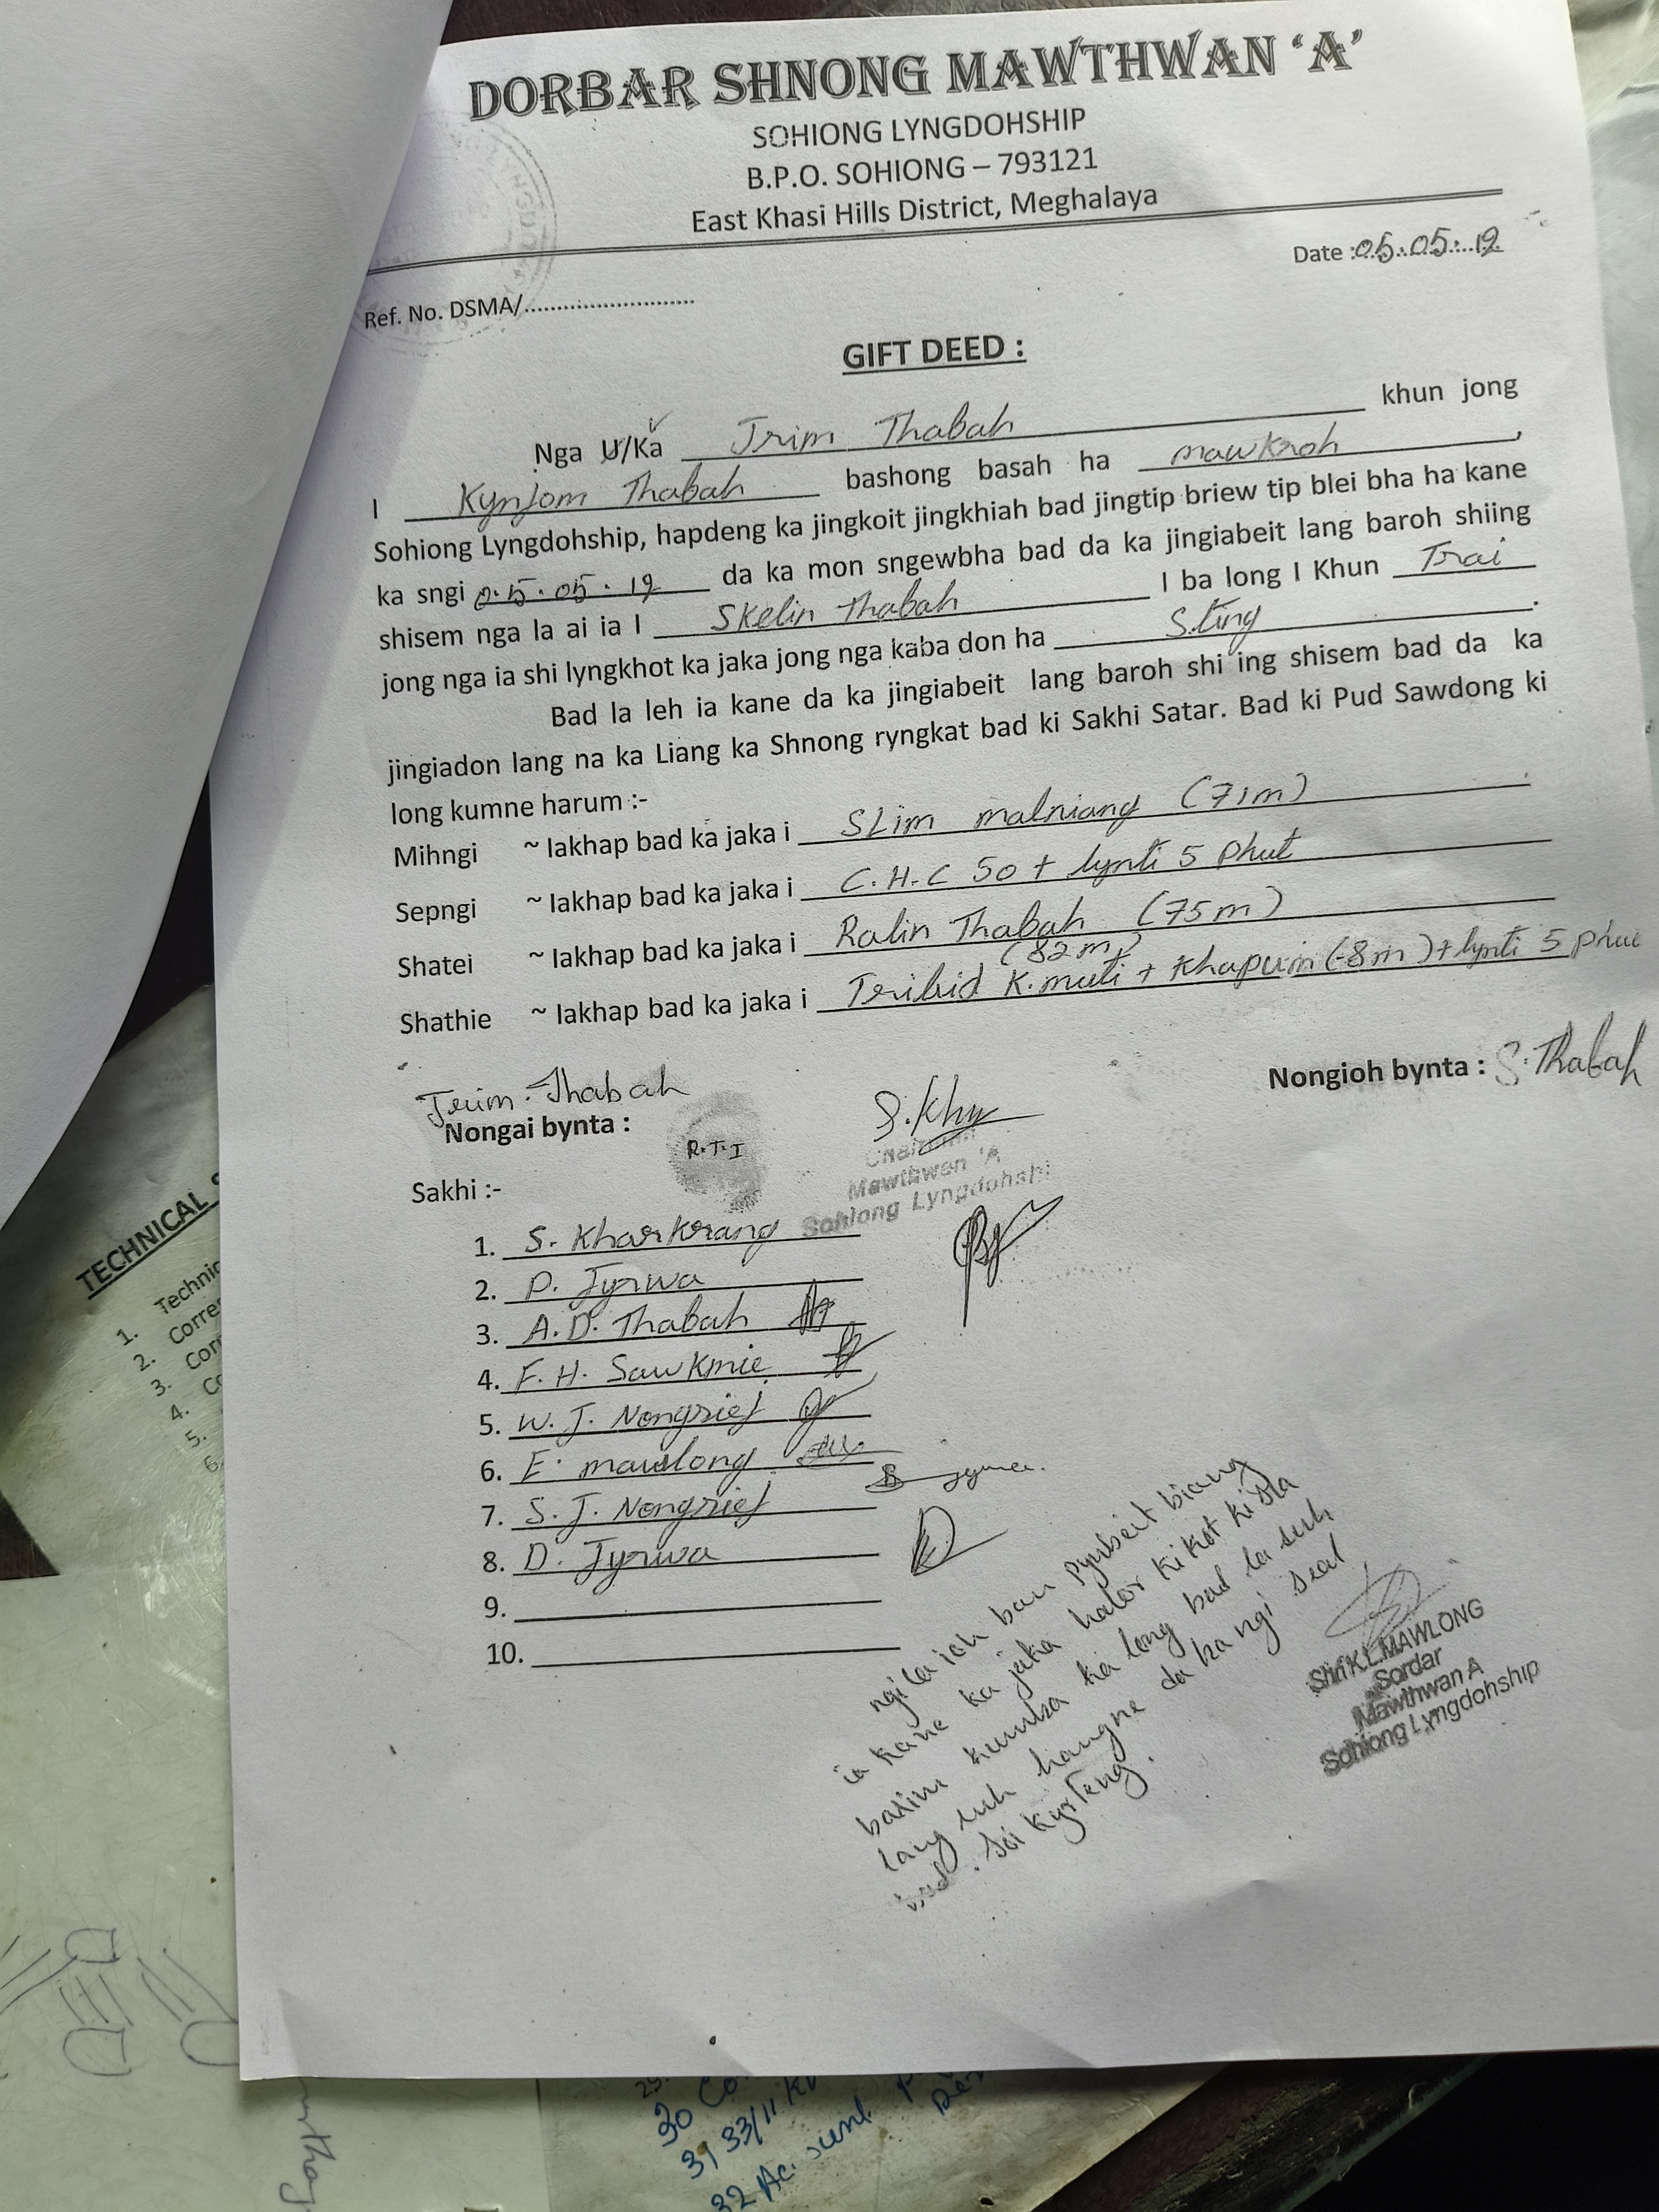 DORBAR SHNONG MAWTHWAN ‘A’
SOHIONG LYNGDOHSHIP
B.P.O. SOHIONG – 793121
East Khasi Hills District, Meghalaya
Date :05.05.12
Ref. No. DSMA/............................
GIFT DEED :
Nga U/Ka Trim Thabah khun jong
I Kynjom Thabah bashong basah ha mawkroh,
Sohiong Lyngdohship, hapdeng ka jingkoit jingkhiah bad jingtip briew tip blei bha ha kane
ka sngi 05.05.12 da ka mon sngewbha bad da ka jingiabeit lang baroh shiing
shisem nga la ai ia I Skelin Thabah I ba long I Khun Trai
jong nga ia shi lyngkhot ka jaka jong nga kaba don ha S.ting.
Bad la leh ia kane da ka jingiabeit lang baroh shi ing shisem bad da ka
jingiadon lang na ka Liang ka Shnong ryngkat bad ki Sakhi Satar. Bad ki Pud Sawdong ki
long kumne harum :-
Mihngi ~ Iakhap bad ka jaka i SLim malniang (71m)
Sepngi ~ Iakhap bad ka jaka i C.H.C 50 + lynti 5 phut
Shatei ~ Iakhap bad ka jaka i Ralin Thabah (75m)
(82m)
Shathie ~ Iakhap bad ka jaka i Tribid K.muti + Khapum (-8m) + lynti 5 phut
Trim Thabah
Nongai bynta :
R.T.I
S.Khw
Nongioh bynta : S.Thabah
Chairman
Mawthwan 'A
Sohiong Lyngdohshi
Sakhi :-
1. S. Kharkrang
2. P. Jyrwa
3. A.D. Thabah
4. F.H. Sawkmie
5. W.J. Nongsiej
6. E. mawlong
7. S.J. Nongsiej
8. D. Jyrwa
9.
10.
ngi la ioh ban pynbeit biang
ia kane ka jaka halor ki kot ki sla
barim kumba ka long bad la suh
lang ruh hangne da ka ngi seal
bad soi kyrteng.
Shri K.L.MAWLONG
Sordar
Mawthwan A
Sohiong Lyngdohship
TECHNICAL
1. Technic
2. Corre
3. Cor
4. Co
5.
6.
30 Co
31 33/11 KV
32 Ac. sunl